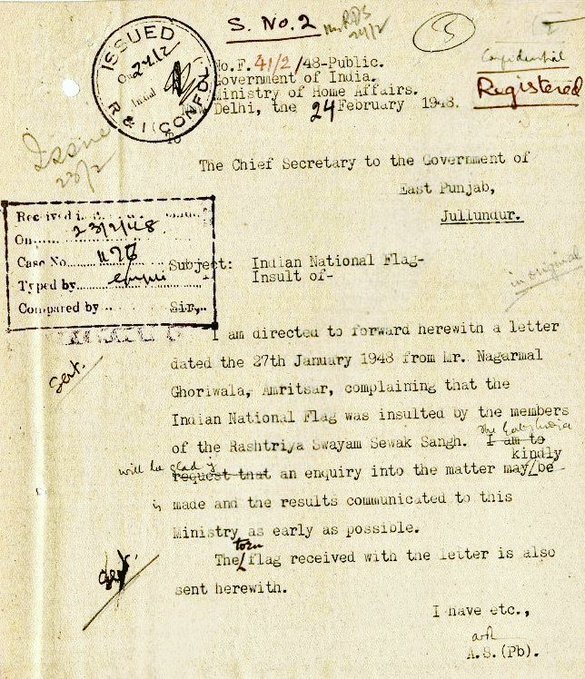 S. No. 2
24/2
5
ISSUED
On 24/2
Initial
R & I (CONFDL)
Confidential
Registered
No.F. 41/2/48-Public.
Government of India.
Ministry of Home Affairs.
Delhi, the 24 February 1948.
To
Issue
23/2
The Chief Secretary to the Government of
East Punjab,
Jullundur.
Received in
On 23/2/48
Case No.
Typed by
Compared by
Subject: Indian National Flag-
Insult of-
in original
Sir,
I am directed to forward herewith a letter
dated the 27th January 1948 from Mr. Nagarmal
Ghoriwala, Amritsar, complaining that the
Indian National Flag was insulted by the members
of the Rashtriya Swayam Sewak Sangh. I am to
The Govt of India
kindly
will be glad if
request that an enquiry into the matter may/be
is made and the results communicated to this
Ministry as early as possible.
torn
The flag received with the letter is also
sent herewith.
Sent.
I have etc.,
A.S.(Pb).